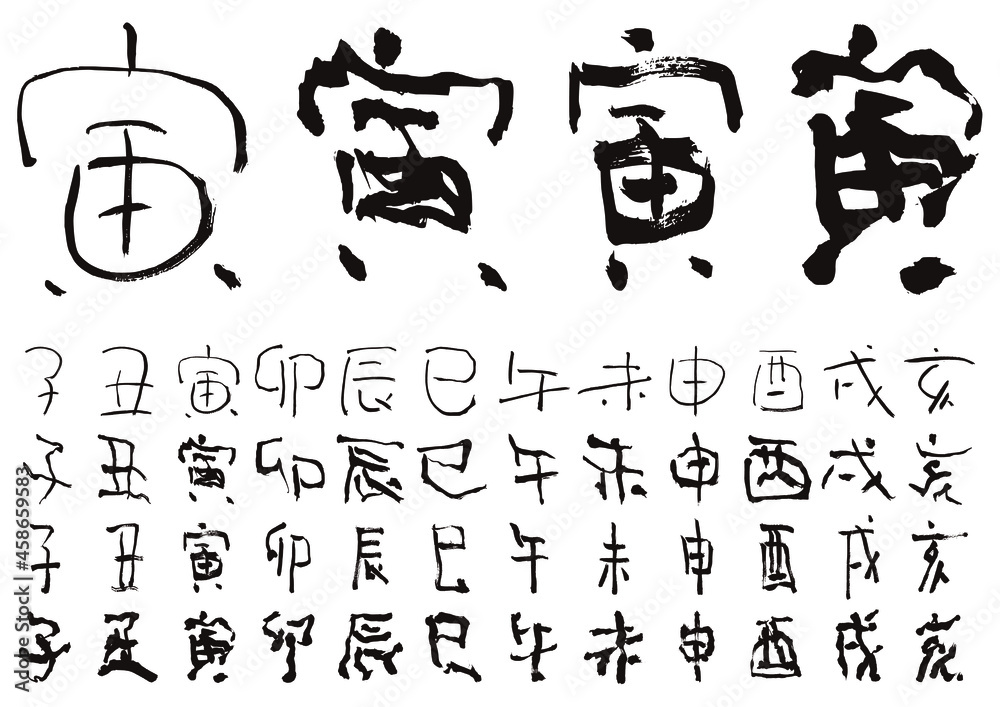 寅 寅 寅 寅
子 丑 寅 卯 辰 巳 午 未 申 酉 戌 亥
子 丑 寅 卯 辰 巳 午 未 申 酉 戌 亥
子 丑 寅 卯 辰 巳 午 未 申 酉 戌 亥
子 丑 寅 卯 辰 巳 午 未 申 酉 戌 亥
Adobe Stock | #458659583